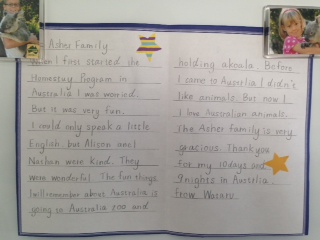 Asher Family
When I fast started the
Homestay Program in
Australia I was worried.
But it was very fun.
I could only speak a little
English but Alison and
Nathan were kind. They
were wonderful. The fun things
I will remember about Australia is
going to Australia zoo and
holding a koala. Before
I came to Austrlia I didn't
like animals. But now I
love Australian animals.
The Asher family is very
gracious. Thank you
for my 10days and
9nights in Austrlia.
from Wataru